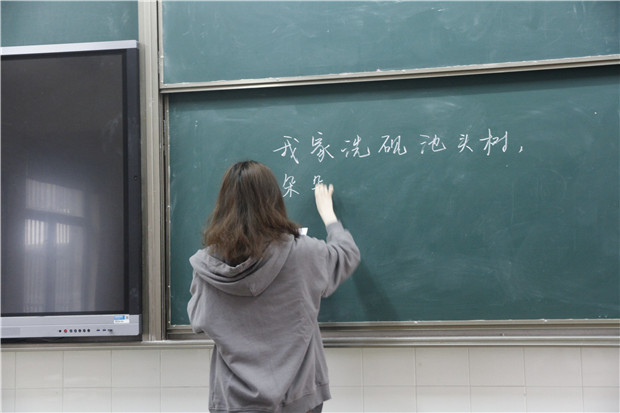 我家洗砚池头树，
朵朵